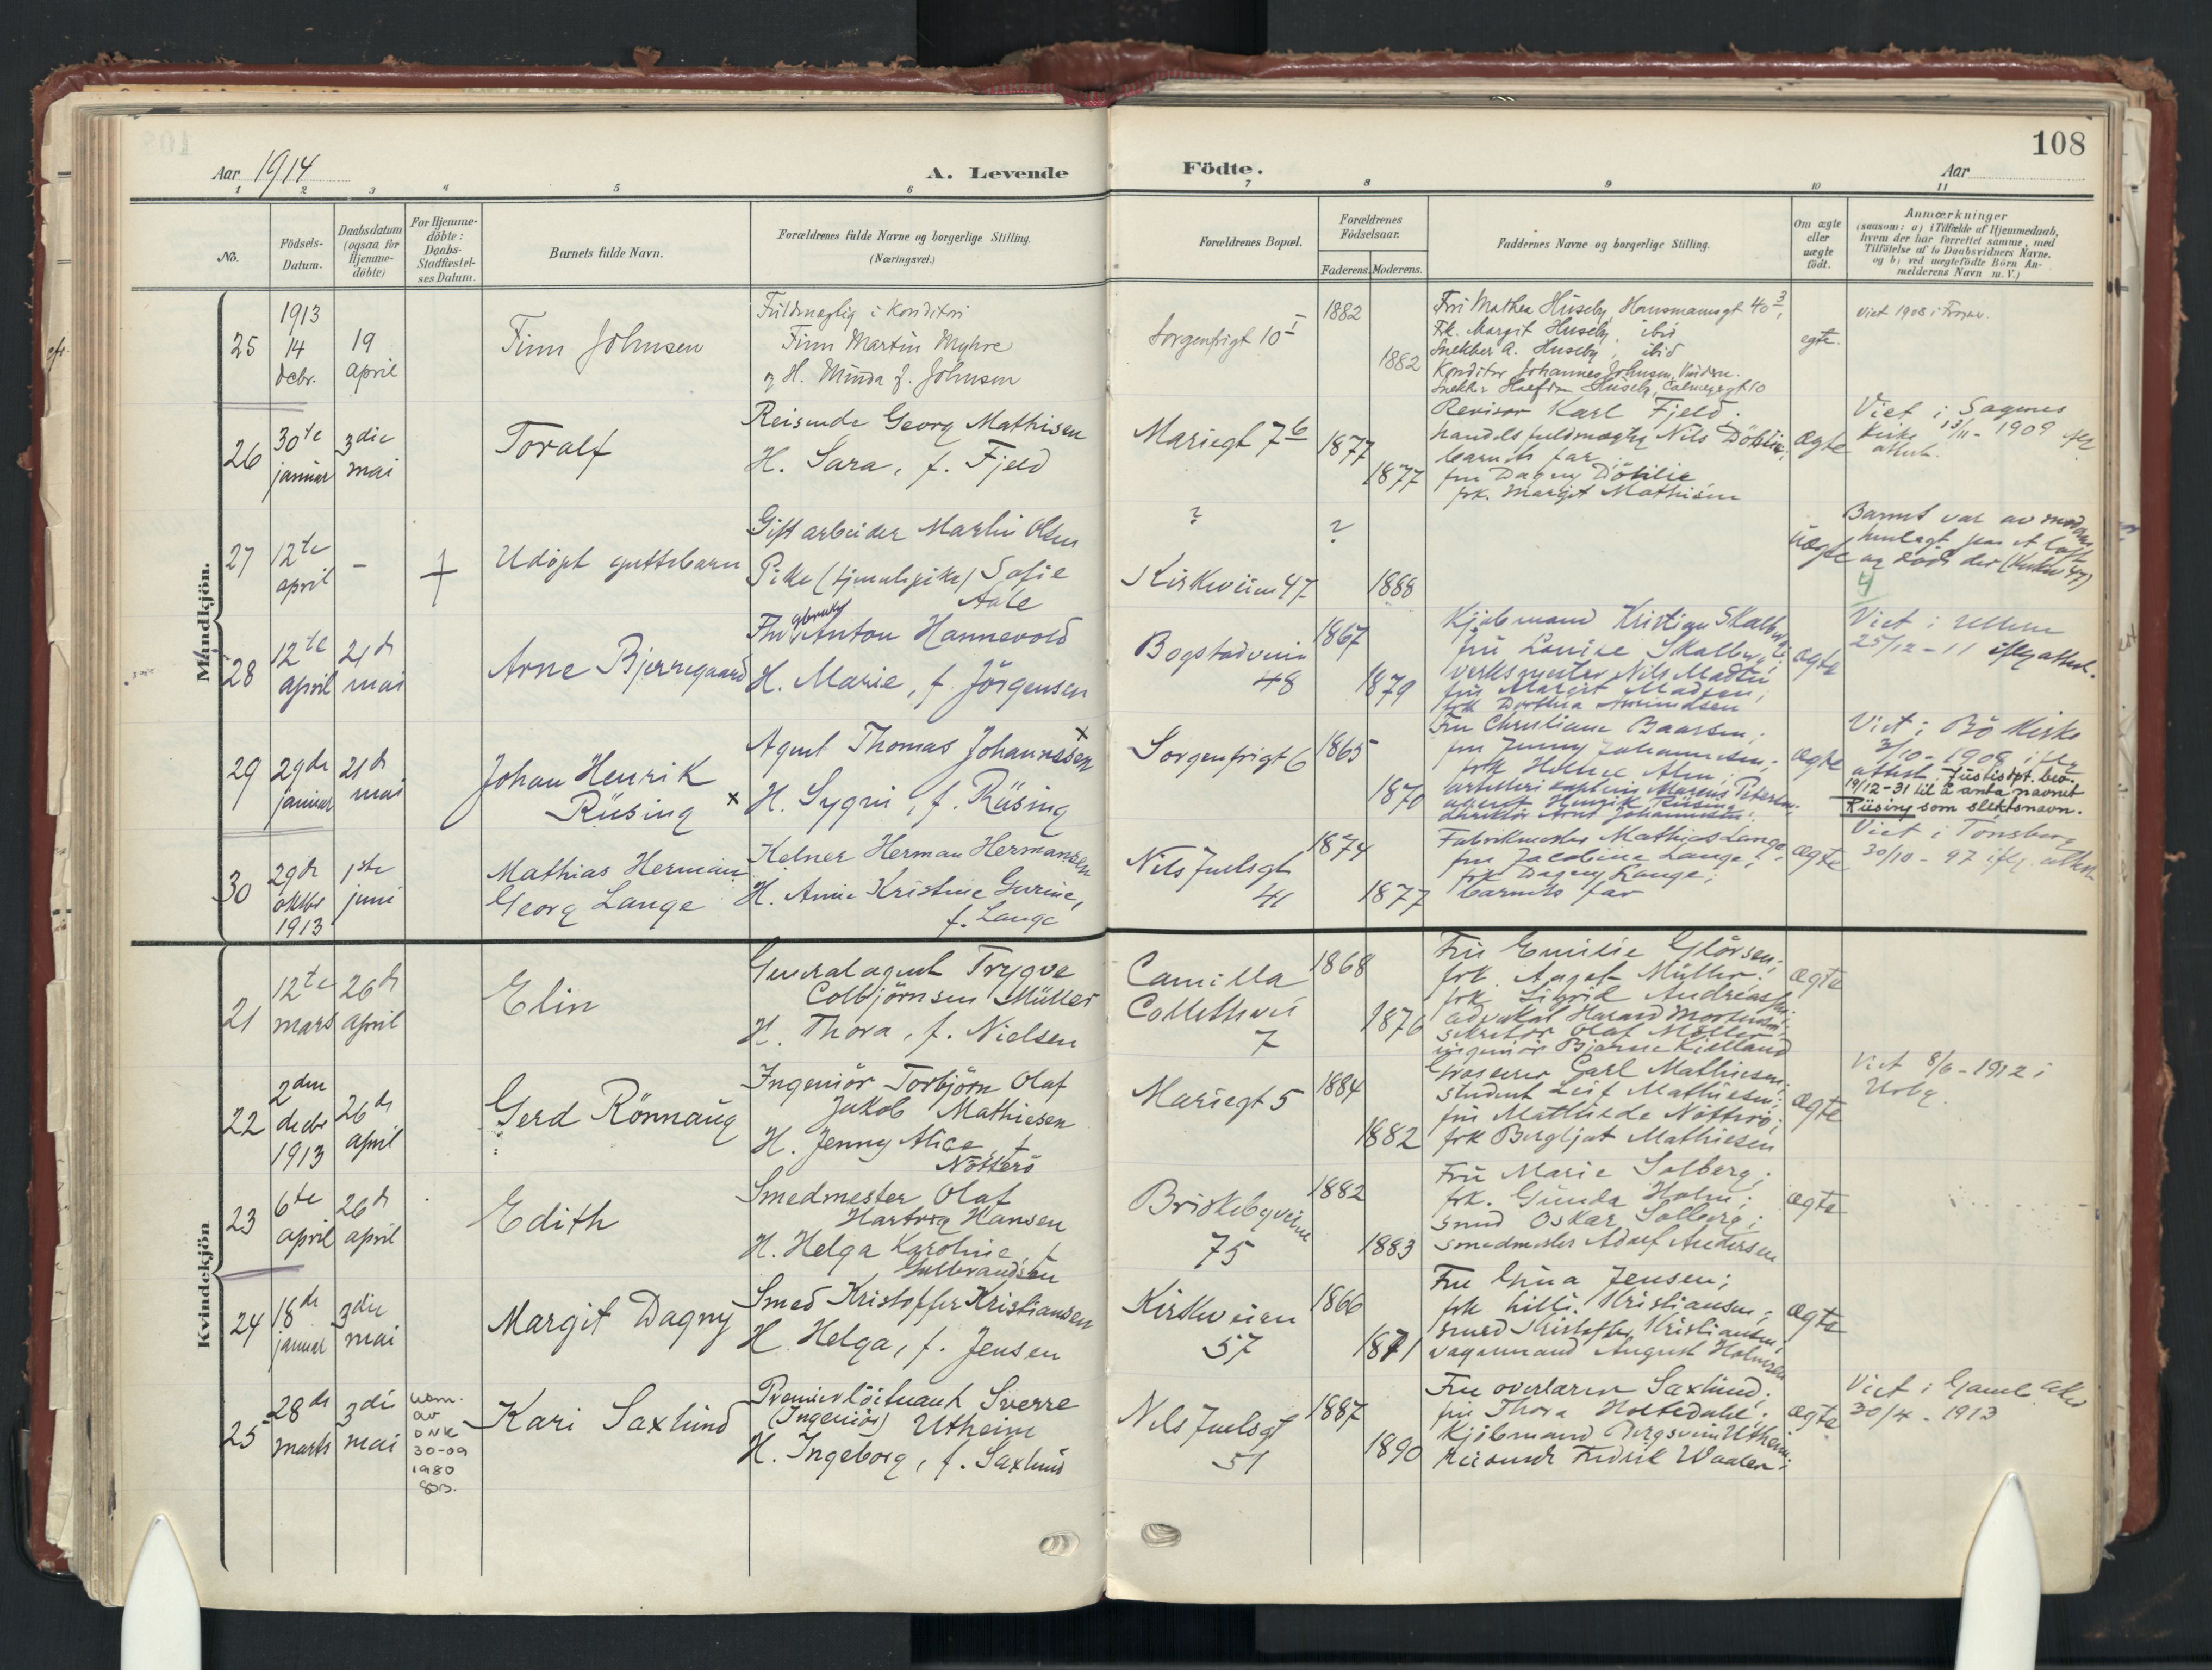 108
Aar 1914
A. Levende Födte.
Aar
1 2 3 4 5 6 7 8 9 10 11
No.
Födsels-
Datum.
Daabsdatum
(ogsaa for
Hjemme-
döbte)
For Hjemme-
döbte:
Daabs-
Stadfæstel-
ses Datum.
Barnets fulde Navn.
Forældrenes fulde Navne og borgerlige Stilling.
(Næringsvei.)
Forældrenes Bopæl.
Forældrenes
Födselsaar.
Faderens. Moderens.
Faddernes Navne og borgerlige Stilling.
Om ægte
eller
uægte
født.
Anmærkninger
(saasom: a) i Tilfælde af Hjemmedaab,
hvem der har forrettet samme, med
Tilföielse af to Daabsvidners Navne.
og b) ved uegtefödte Börn An-
melderens Navn m. V.)
Mandkjön.
25
1913
14
decbr.
19
april
Finn Johnsen
Fuldmægtig i Konditori
Finn Martin Myhre
og H. Minda f. Johnsen
Sorgenfrigt 10 I
1882
1882
Fru Mathea Huseby, Hausmannsgt 40 3,
Frk. Margit Huseby, ibid
Snekker A. Huseby, ibid
Konditor Johannes Johnsen,
Snekker Halfdan Huseby, Calmeyersgt 10
egte.
Viet 1908 i Frogner.
26
30te
januar
3die
mai
Toralf
Reisende Georg Mathisen
H. Sara, f. Fjeld
Mariegt 7 b
1877
1877
Revisor Karl Fjeld.
handelsfuldmægtig Nils Döhlie,
barnets far
fru Dagny Döhlie
frk. Margit Mathisen
Ægte
Viet i Sagenes
Kirke 13/11 - 1909 ifg
attest.
27
12te
april
-
+
Udöpt guttebarn
Gift arbeider Martin Olsen
Pike (tjenestepike) Sofie
Aale
?
?
Kirkeveien 47
1888
uægte
Barnet var av moderen
henlagt paa et loft
og döde der
28
12te
april
21de
mai
Arne Bjerregaard
Anton Hannevold
H. Marie, f. Jörgensen
Bogstadveien
48
1867
1879
Kjöbmand Kristian Skalberg;
fru Louise Skalberg;
verksmester Nils Madsen
fru Margit Madsen;
frk Dorthea Amundsen
Ægte
Viet i Ullern
25/12 - 11 iflg attest.
29
29de
januar
21de
mai
Johan Henrik
Rüsing
x
Agent Thomas Johannessen x
H. Sygni, f. Rüsing
Sorgenfrigt 6
1865
1870
Fru Christiane Baarsen;
fru Jenny Johannessen;
artillerikaptein Marius Petersen;
agent Henrik Rüsing
direktör Arnt Johannessen.
Ægte
Viet i Bö Kirke
3/10 - 1908 iflg
attest. Justisdpt. bev.
19/12-31 til å anta navnet
Rüsing som slektsnavn.
30
29de
oktbr
1913
1ste
juni
Mathias Herman
Georg Lange
Kelner Herman Hermansen
H. Anne Kristine Gurine,
f. Lange
Nils Juelsgt
41
1874
1877
Fabrikmester Mathias Lange;
fru Jacobine Lange;
frk Dagny Lange;
barnets far
Ægte
Viet i Tönsberg
30/10 - 97 iflg. attest
Kvindekjön
21
12te
mars
26de
april
Elin
Generalagent Trygve
Colbjörnsen Müller
H. Thora, f. Nielsen
Camilla
Collettsvei
7
1868
1876
Fru Emilie Glörsen;
frk. Aagot Müller;
frk Sigrid
sekretær Olaf Möller;
ingeniör Bjarne Kielland
Ægte
22
2den
decbr
1913
26de
april
Gerd Rönnaug
Ingeniör Torbjörn Olaf
Jakob Mathiesen
H. Jenny Alice, f.
Nötterö
Mariegt 5
1884
1882
Grosserer Carl Mathiesen;
student Leif Mathiesen;
fru Mathilde Nötterö;
frk Bergljot Mathiesen
Ægte
Viet 8/6 - 1912 i
23
6te
april
26de
april
Edith
Smedmester Olaf
Hartvig Hansen
H. Helga Karoline, f.
Gulbrandsen
Briskebyveien
75
1882
1883
Fru Marie Solberg;
frk. Gunda Holm;
smed Oskar Solberg;
smedmester Adolf Andersen
Ægte
24
18de
januar
3die
mai
Margit Dagny
Smed Kristoffer Kristiansen
H. Helga, f. Jensen
Kirkeveien
57
1866
1871
Fru Gina Jensen;
frk Lilli Kristiansen;
smed Kristoffer Kristiansen;
vognmand August Halvorsen
Ægte
25
28de
marts
3die
mai
Uem.
av
DNK
30-09
1980
Kari Saxlund
Premierlöitnant Sverre
(Ingeniör) Utheim
H. Ingeborg, f. Saxlund
Nils Juelsgt
51
1887
1890
Fru overlærer Saxlund;
fru Thora Holtedahl;
Kjöbmand Bergsvein Utheim;
Reisende Fredrik Waaler;
Ægte
Viet i Gamle Aker
30/4 - 1913